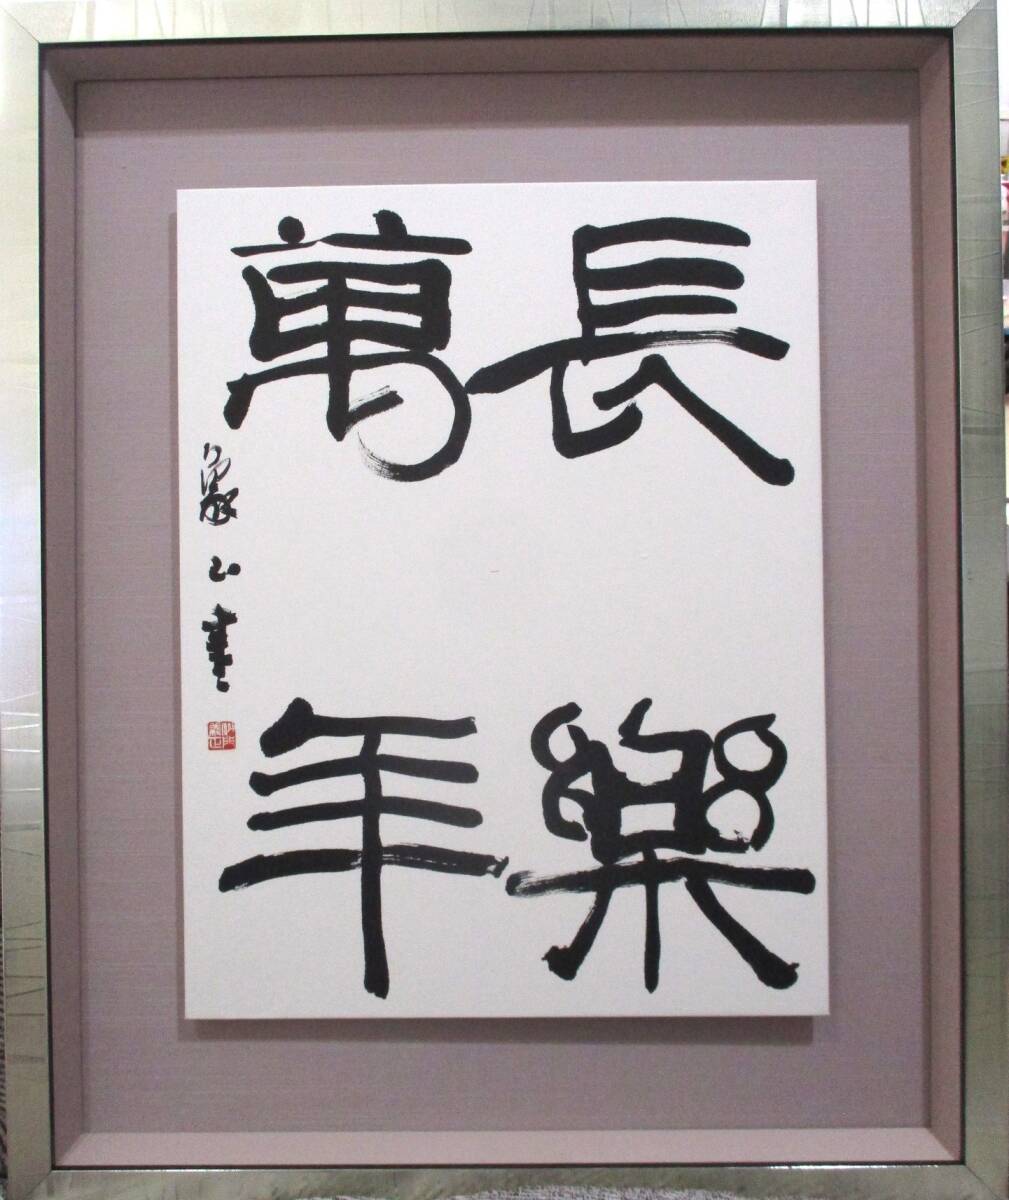 長樂
萬年
象山書